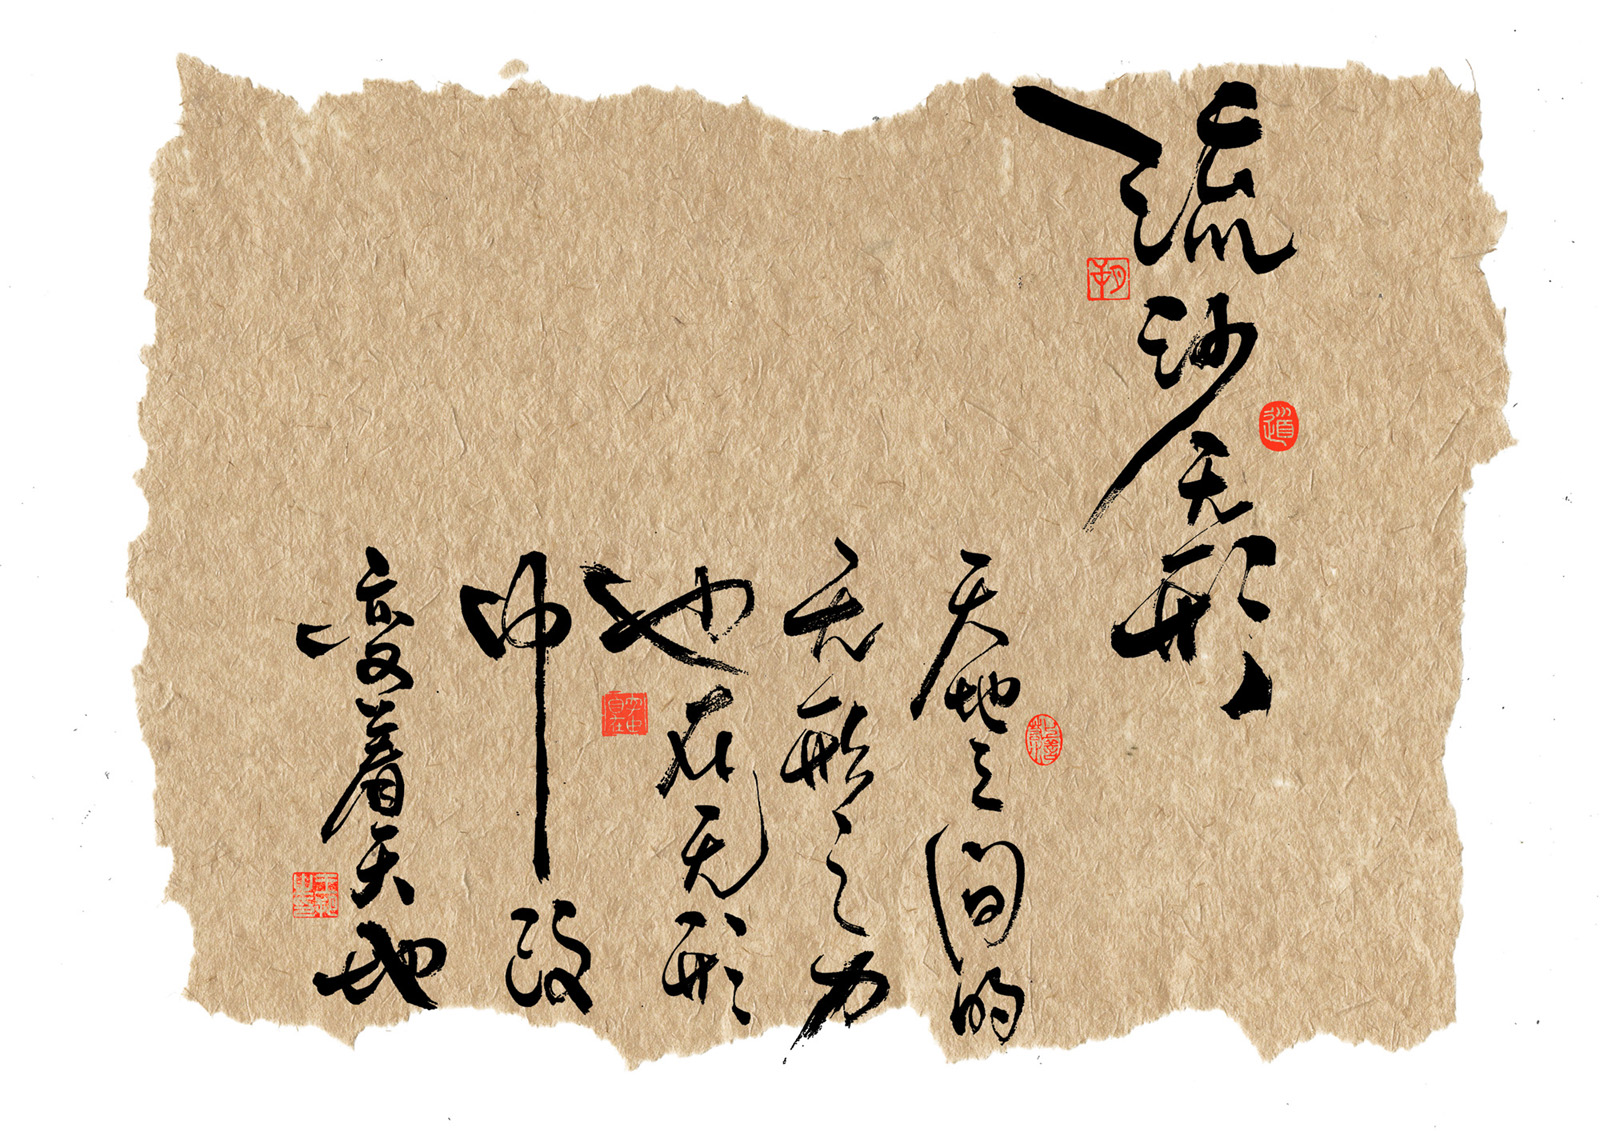 流沙无形
天地之间的
无形之力
也在无形
中改
变着天地
道